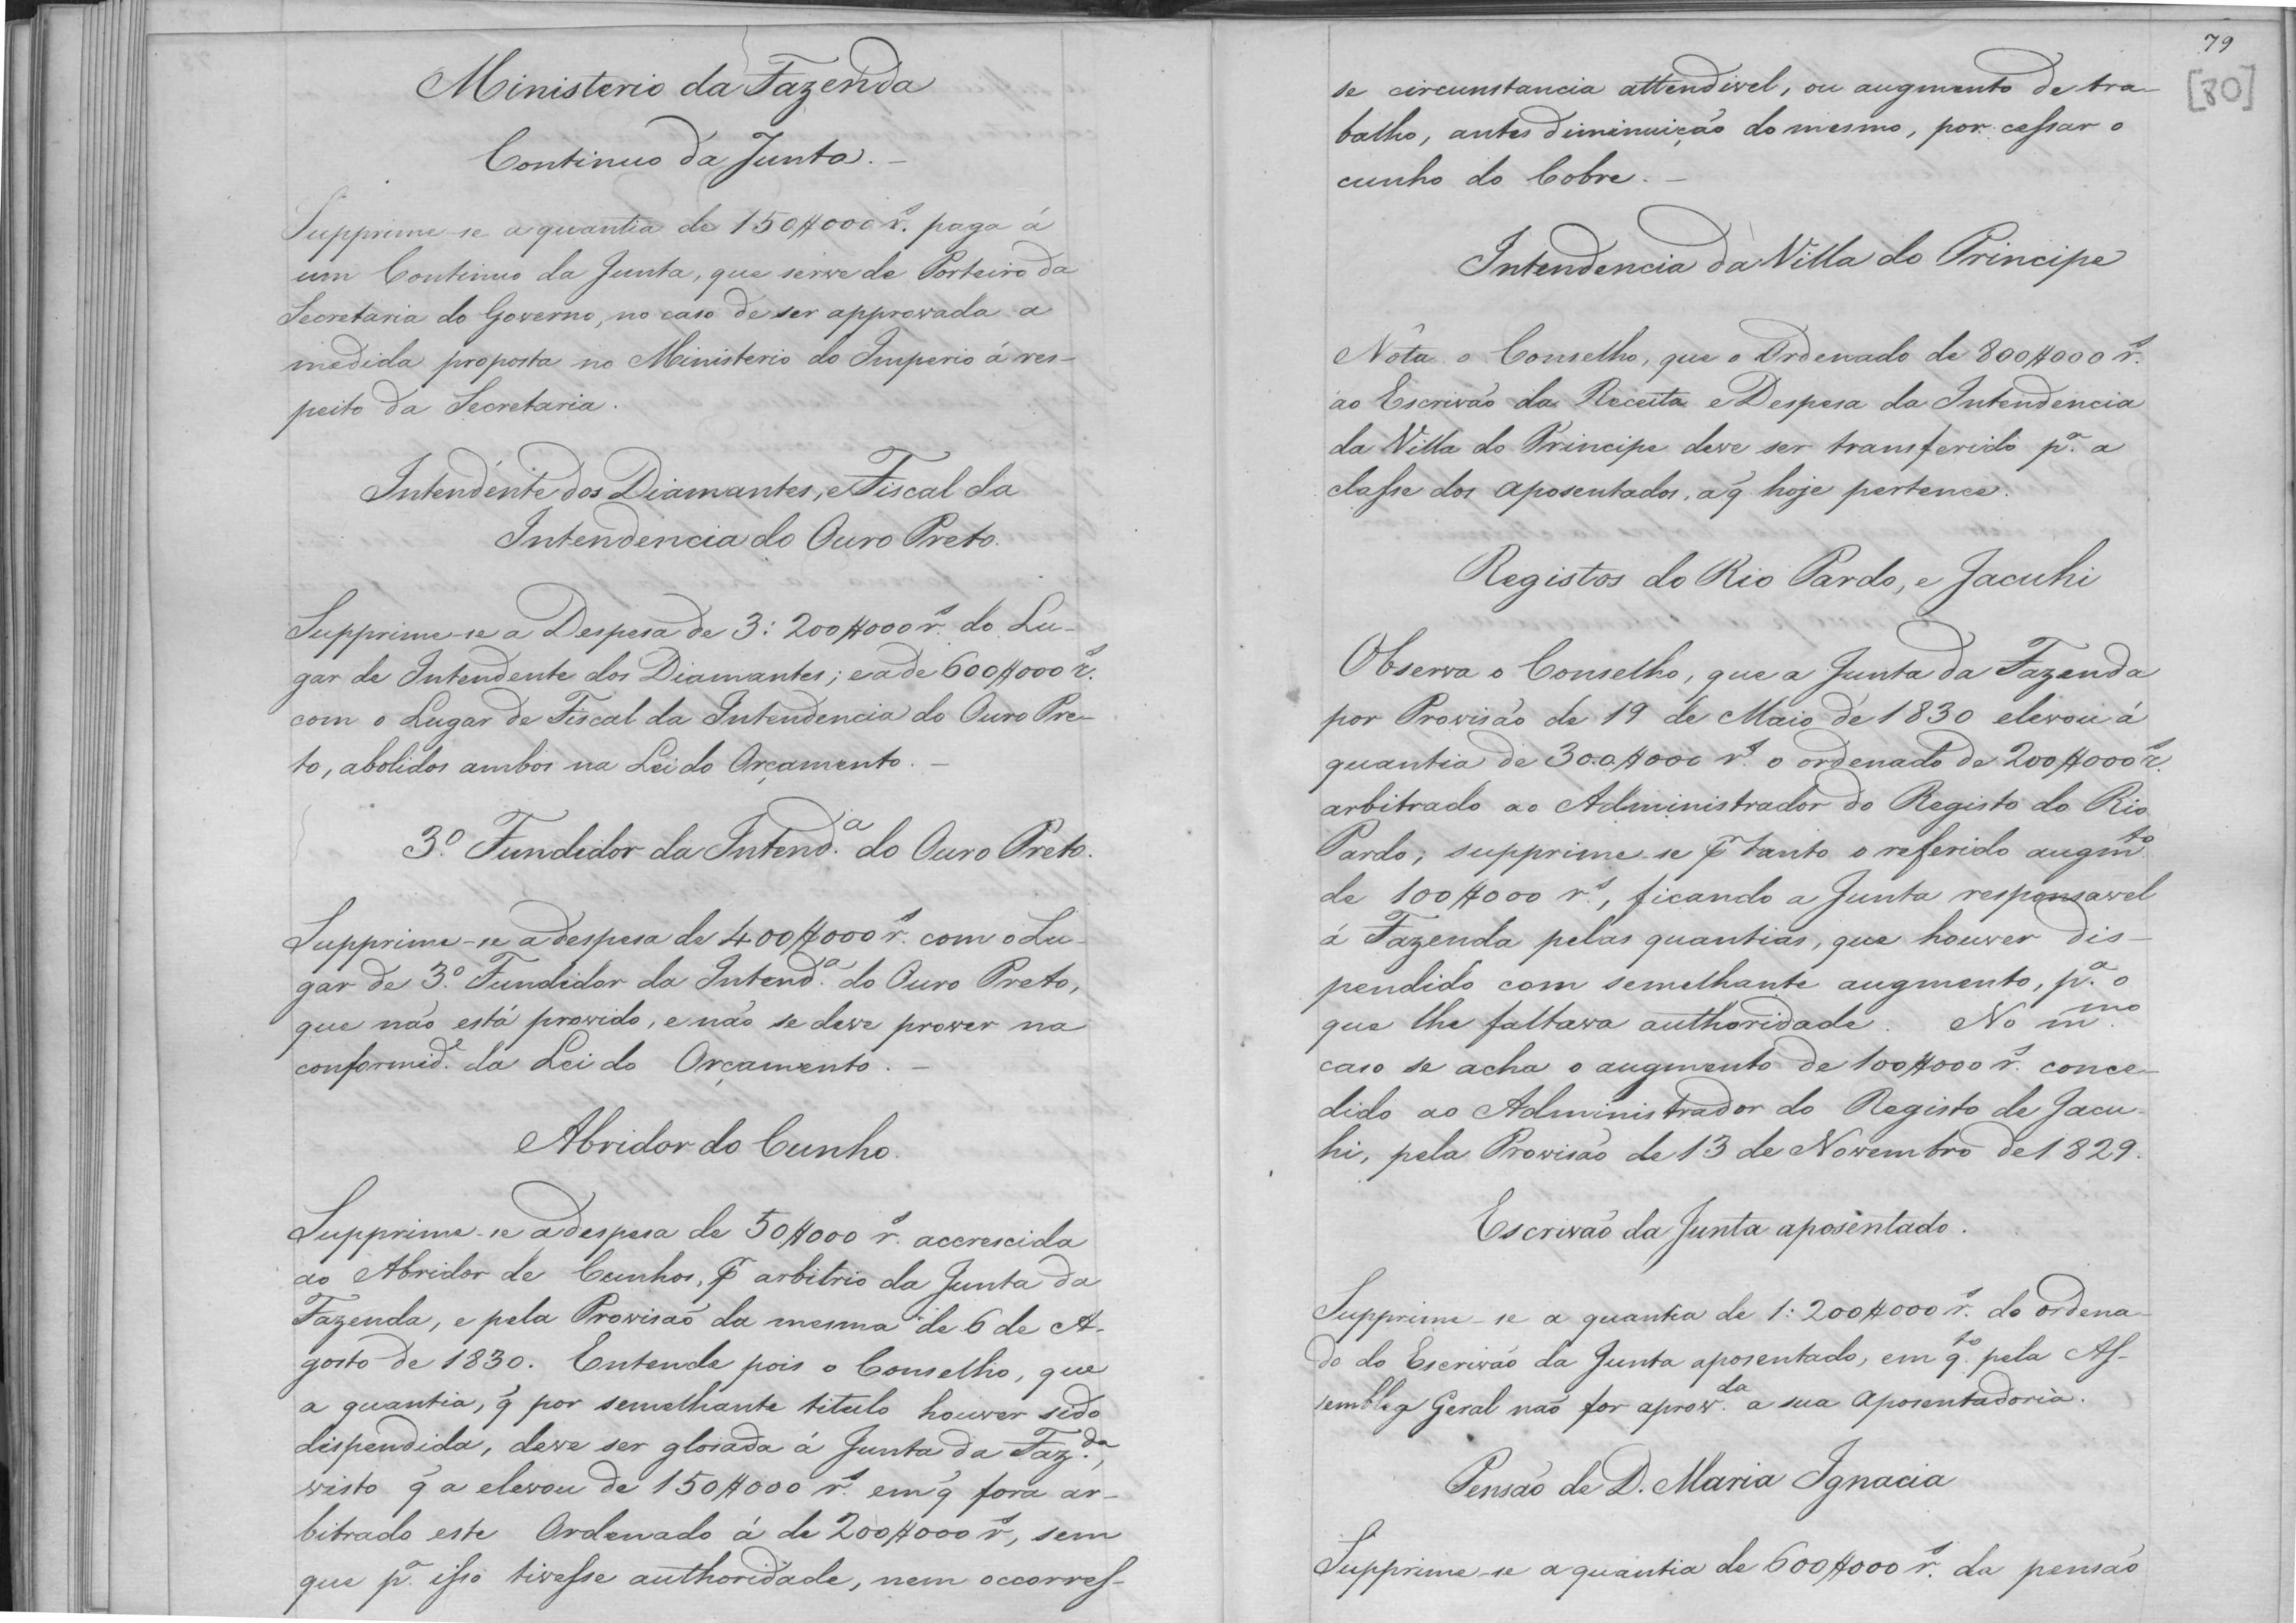 Ministerio da Fazenda
Continuo da Junta. —
Supprime-se a quantia de 150$000 rs. paga á
um Continuo da Junta, que serve de Porteiro da
Secretaria do Governo, no caso de ser approvada a
medida proposta no Ministerio do Imperio á res-
peito da Secretaria.
Intendente dos Diamantes, e Fiscal da
Intendencia do Ouro Preto.
Supprime-se a Despesa de 3:200$000 rs. do Lu-
gar de Intendente dos Diamantes; e a de 600$000 rs.
com o Lugar de Fiscal da Intendencia do Ouro Pre-
to, abolidos ambos na Lei do Orçamento. —
3.º Fundidor da Intend.ª do Ouro Preto.
Supprime-se a despesa de 400$000 rs. com o Lu-
gar de 3.º Fundidor da Intend.ª do Ouro Preto,
que não está provido, e não se deve prover na
conformid.e da Lei do Orçamento. —
Abridor do Cunho.
Supprime-se a despesa de 50$000 rs. accrescida
ao Abridor de Cunhos, pr arbitrio da Junta da
Fazenda, e pela Provisão da mesma de 6 de A-
gosto de 1830. Entende pois o Conselho, que
a quantia, q̃ por semelhante titulo houver sido
dispendida, deve ser glosada á Junta da Faz.da,
visto q̃ a elevou de 150$000 rs. em q̃ fora ar-
bitrado este Ordenado á de 200$000 rs, sem
que p.ª isso tivesse authoridade, nem occorres-
79
[80]
se circunstancia attendivel, ou augmento de tra-
balho, antes diminuição do mesmo, por cessar o
cunho do Cobre. —
Intendencia da Villa do Principe
Nóta o Conselho, que o Ordenado de 800$000 rs.
ao Escrivão da Receita e Despesa da Intendencia
da Villa do Principe deve ser transferido p.ª a
classe dos aposentados, a q̃ hoje pertence.
Registos do Rio Pardo, e Jacuhi
Observa o Conselho, que a Junta da Fazenda
por Provisão de 19 de Maio de 1830 elevou á
quantia de 300$000 rs. o ordenado de 200$000 rs.
arbitrado ao Administrador do Registo do Rio
Pardo; supprime-se pr tanto o referido augm.to
de 100$000 rs., ficando a Junta responsavel
á Fazenda pelas quantias, que houver dis-
pendido com semelhante augmento, p.ª o
que lhe faltava authoridade. No m.mo
caso se acha o augmento de 100$000 rs. conce-
dido ao Administrador do Registo de Jacu-
hi, pela Provisão de 13 de Novembro de 1829.
Escrivão da Junta aposentado.
Supprime-se a quantia de 1:200$000 rs. do ordena-
do do Escrivão da Junta aposentado, em q.to pela As-
semblea Geral não for aprov.da a sua aposentadoria.
Pensão de D. Maria Ignacia
Supprime-se a quantia de 600$000 rs. da pensão